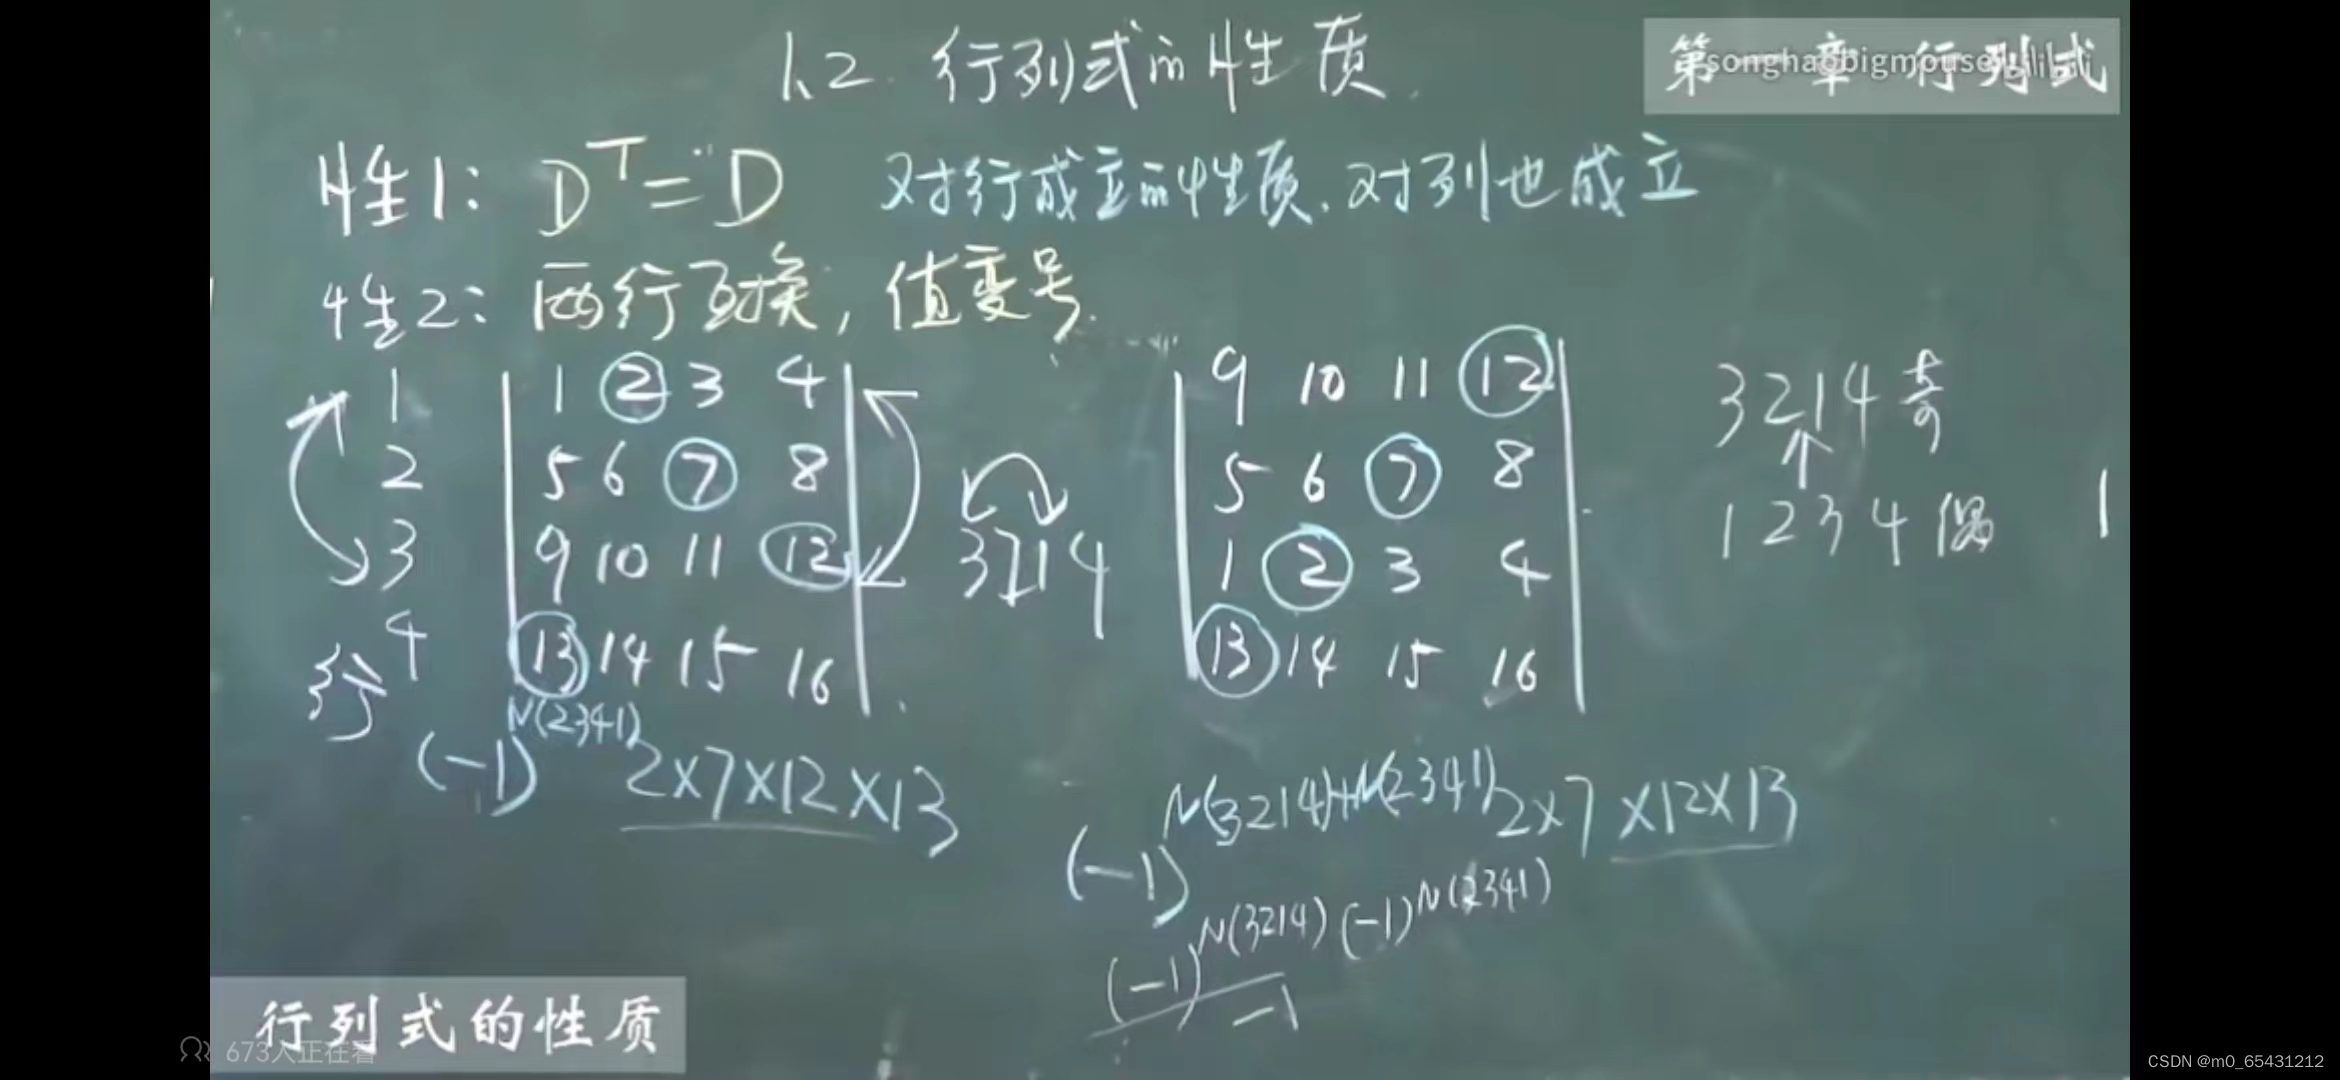 1.2. 行列式的性质.
第一章 行列式
songhaobigmouse
bilibili
性1: D^T = D 对行成立的性质.对列也成立
性2: 两行互换, 值变号.
1 2 3 4
1 2 3 4
5 6 7 8
9 10 11 12
13 14 15 16
行
3214
9 10 11 12
5 6 7 8
1 2 3 4
13 14 15 16
3214 奇
↑
1234 偶
1
(-1)^N(2341) 2×7×12×13
(-1)^N(3214)+N(2341) 2×7×12×13
(-1)^N(3214) (-1)^N(2341)
-1
行列式的性质
673人正在看
CSDN @m0_65431212